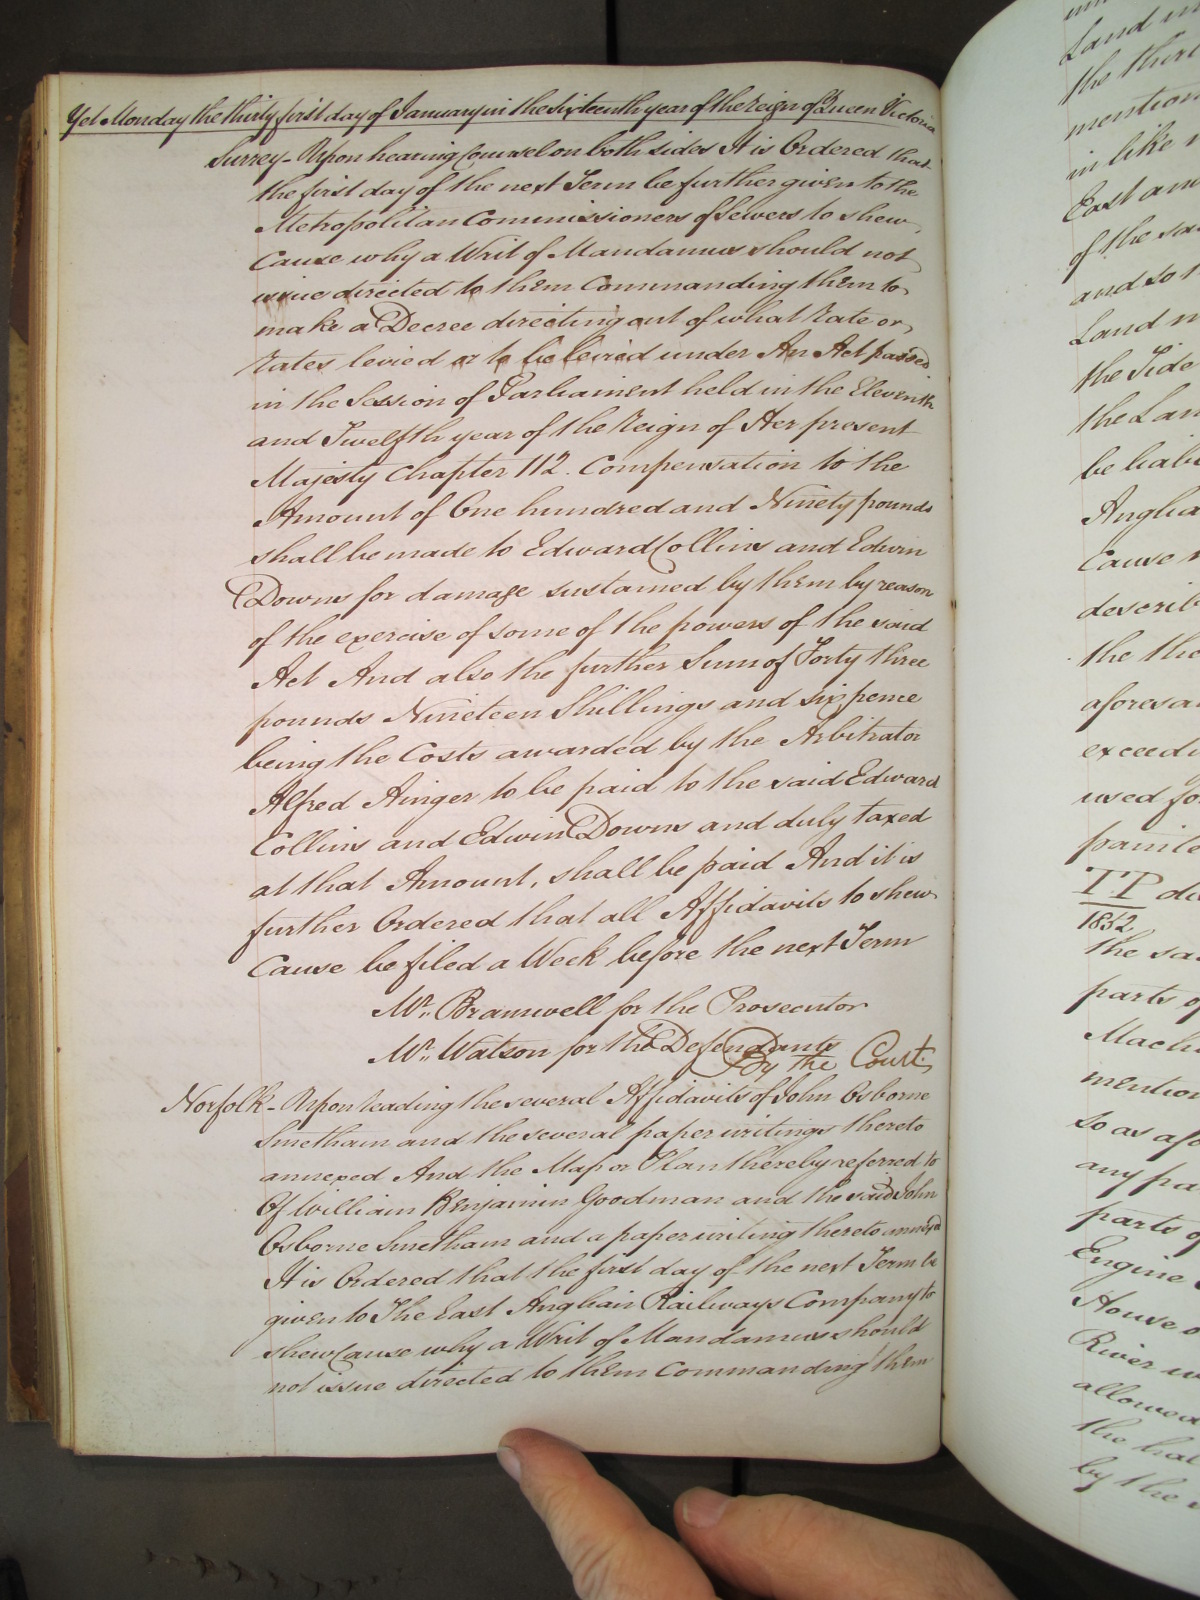 Yet Monday the thirty first day of January in the sixteenth year of the reign of Queen Victoria
Surrey - Upon hearing Counsel on both sides It is Ordered that
the first day of the next Term be further given to the
Metropolitan Commissioners of Sewers to shew
Cause why a Writ of Mandamus should not
issue directed to them Commanding them to
make a Decree directing out of what Rate or
Rates levied or to be levied under An Act passed
in the Session of Parliament held in the Eleventh
and Twelfth year of the Reign of Her present
Majesty Chapter 112. Compensation to the
Amount of One hundred and Ninety pounds
shall be made to Edward Collins and Edwin
Downs for damage sustained by them by reason
of the exercise of some of the powers of the said
Act And also the further Sum of Forty three
pounds Nineteen Shillings and six pence
being the Costs awarded by the Arbitrator
Alfred Ainger to be paid to the said Edward
Collins and Edwin Downs and duly taxed
at that Amount, shall be paid And it is
further Ordered that all Affidavits to shew
Cause be filed a Week before the next Term
Mr. Bramwell for the Prosecutor
Mr. Watson for the Defendants
By the Court
Norfolk - Upon reading the several Affidavits of John Osborne
Smetham and the several paper writings thereto
annexed And the Map or Plan thereby referred to
Of William Benjamin Goodman and the said John
Osborne Smetham and a paper writing thereto annexed
It is Ordered that the first day of the next Term be
given to The East Anglian Railways Company to
shew Cause why a Writ of Mandamus should
not issue directed to them Commanding them
Land
the
mention
in like
East
of the
and so
Land
the Side
the Lan
be liab
Anglia
Cause
describ
the the
aforesa
exceed
used fo
painte
TP
1852
the sa
parts of
Machi
mention
so as afo
any pa
parts of
Engine
House
River
allowed
the
by the